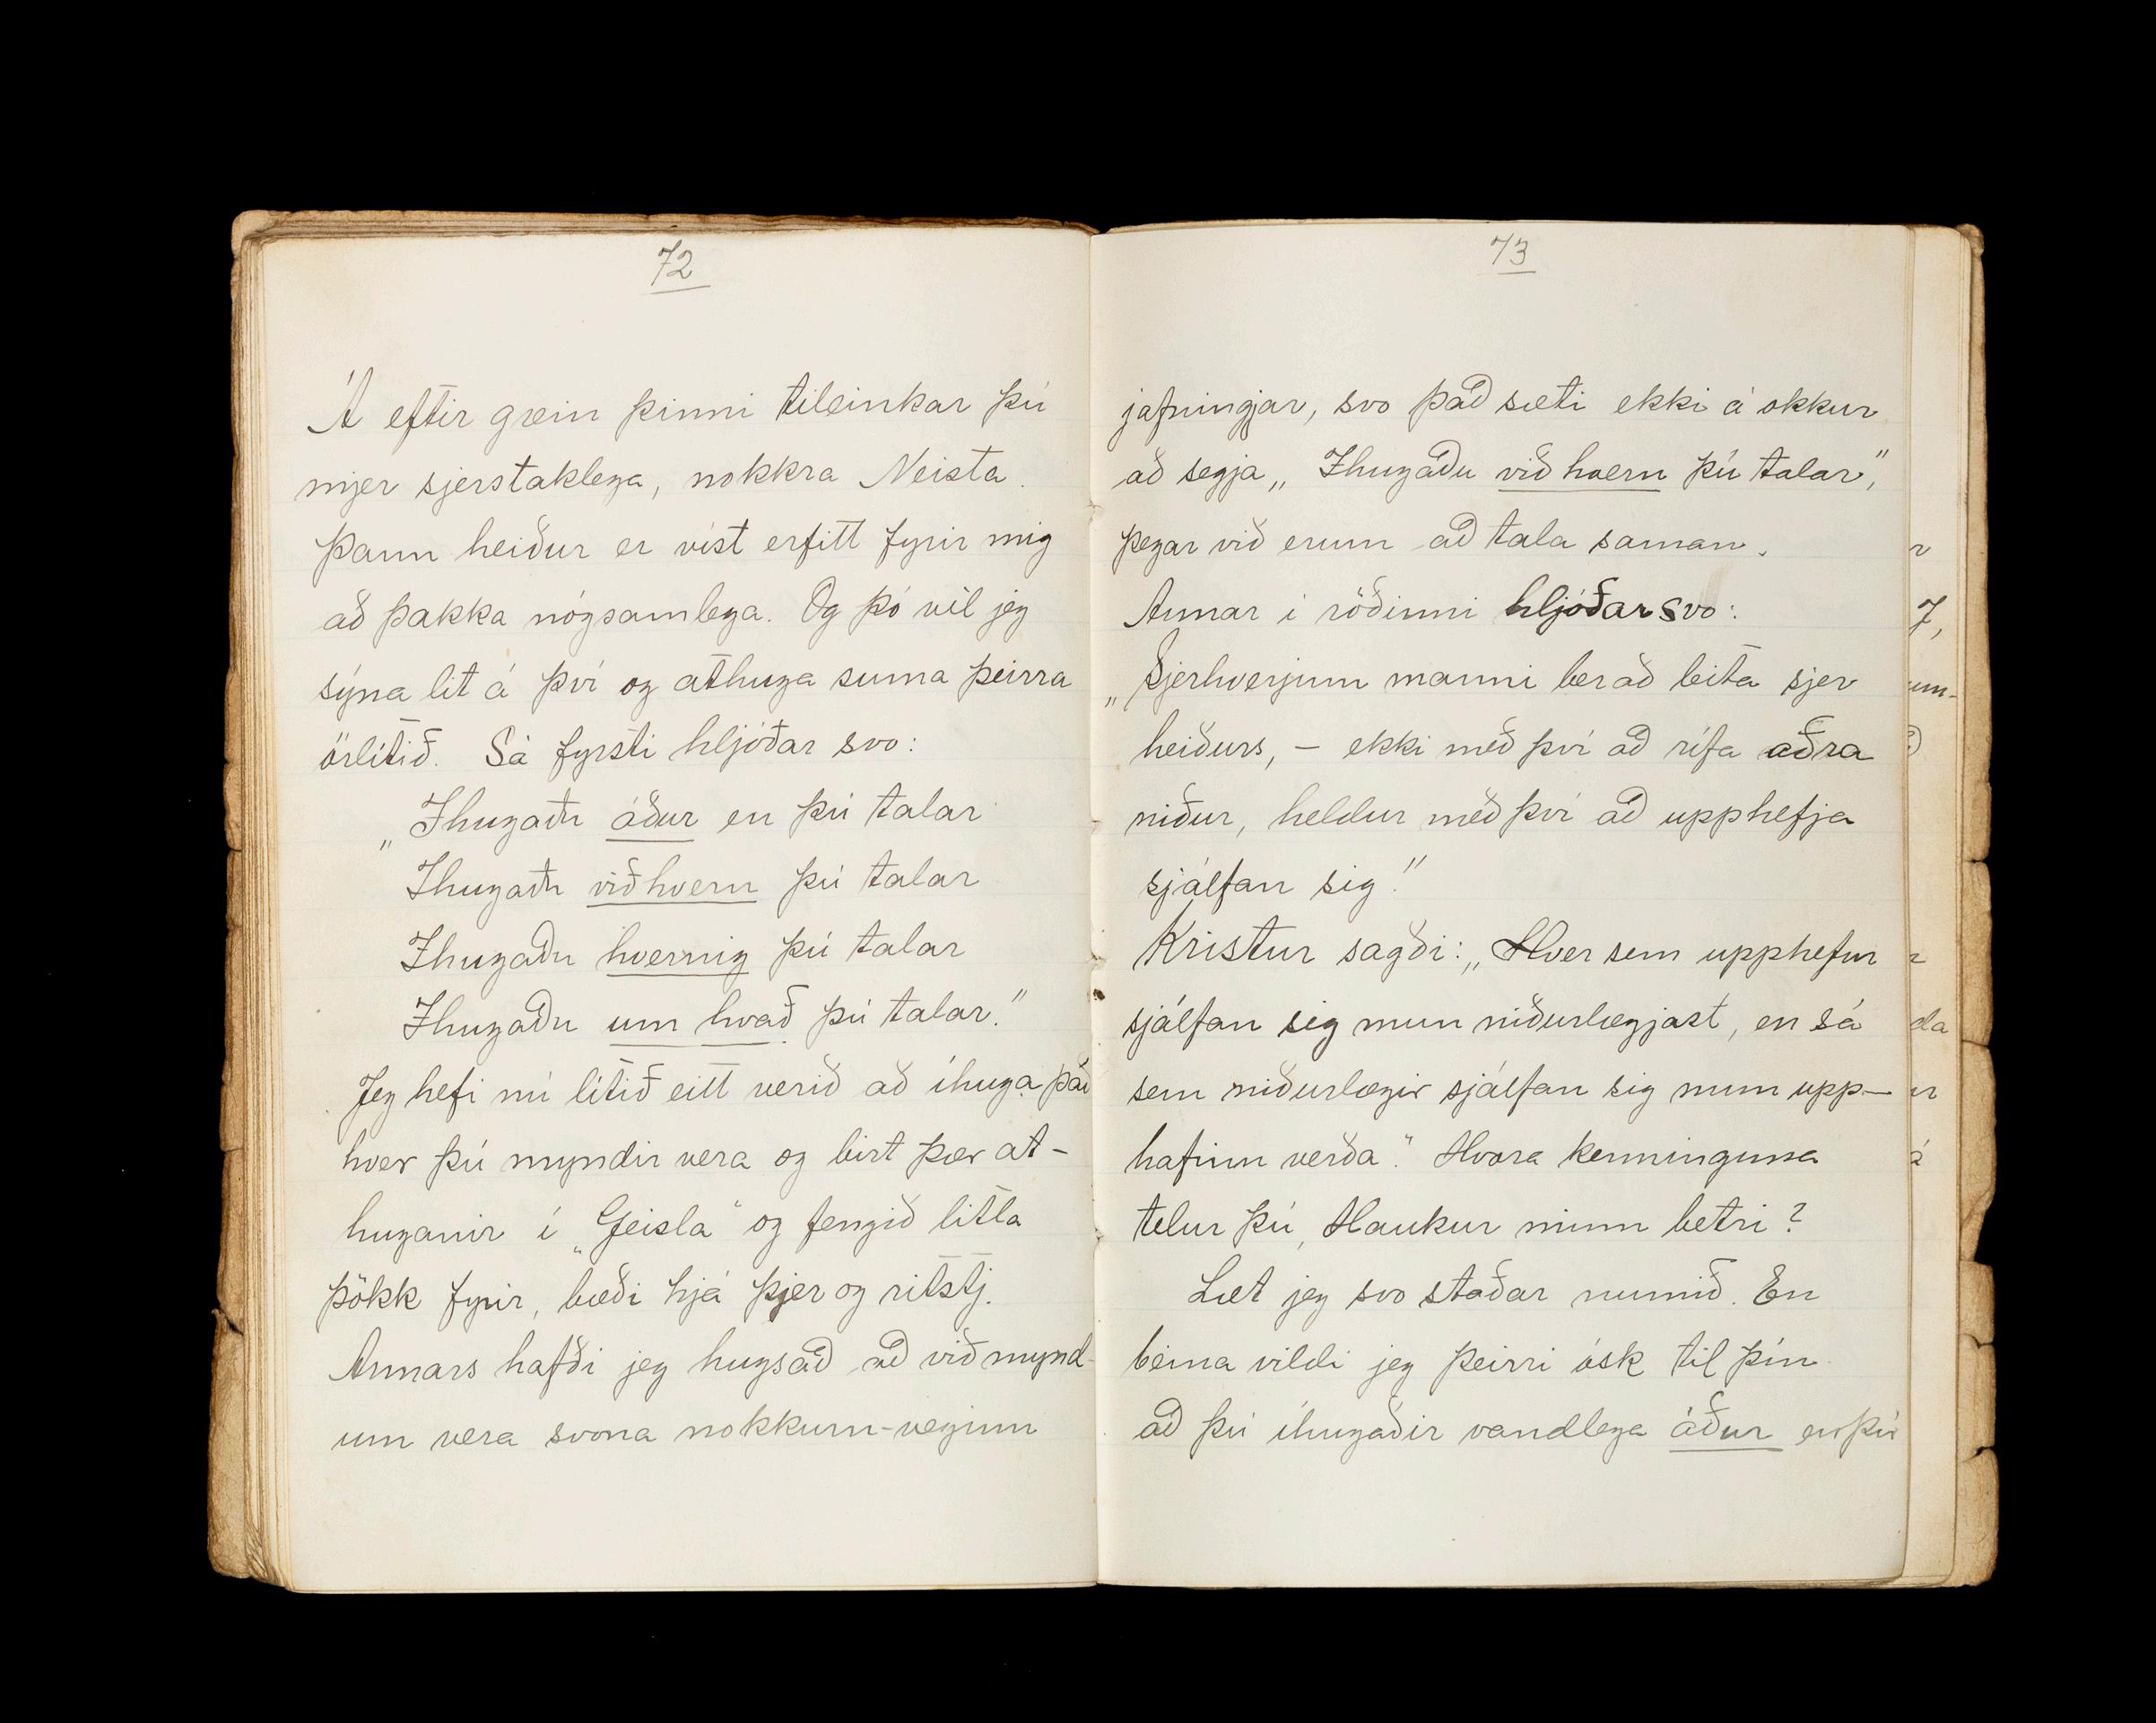 72
Á eftir grein þinni tileinkar þú
mjer sjerstaklega, nokkra Neista.
Þann heiður er víst erfitt fyrir mig
að þakka nógsamlega. Og þó vil jeg
sýna lit á því og athuga suma þeirra
örlítið. Sá fyrsti hljóðar svo:
„Íhugaðu áður en þú talar
Íhugaðu við hvern þú talar
Íhugaðu hvernig þú talar
Íhugaðu um hvað þú talar."
Jeg hefi nú lítið eitt verið að íhuga það
hver þú myndir vera og birt þær at-
huganir í „Geisla" og fengið litla
þökk fyrir, bæði hjá þjer og ritstj.
Annars hafði jeg hugsað að við mynd-
um vera svona nokkurn-veginn
73
jafningjar, svo það sæti ekki á okkur
að segja „Íhugaðu við hvern þú talar",
þegar við erum að tala saman.
Annar í röðinni hljóðar svo:
„Sjerhverjum manni ber að leita sjer
heiðurs, – ekki með því að rífa aðra
niður, heldur með því að upphefja
sjálfan sig!"
Kristur sagði: „Hver sem upphefur
sjálfan sig mun niðurlægjast, en sá
sem niðurlægir sjálfan sig mun upp-
hafinn verða". Hvora kenninguna
telur þú, Haukur minn betri?
Læt jeg svo staðar numið. En
beina vildi jeg þeirri ósk til þín
að þú íhugaðir vandlega áður en þú